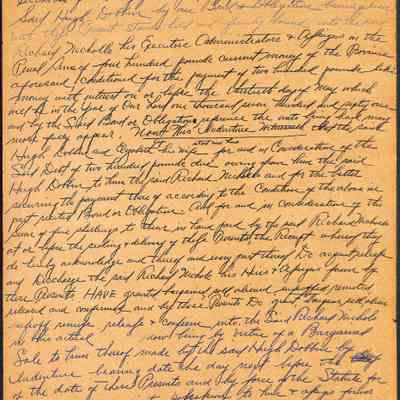 Said Hugh Dobbin by one Bond & Obligation
Richard Nicholls his Executors Administrators & Assigns in the
Penal Sum of four hundred pounds current money of the Province
aforesaid Conditioned for the payment of two hundred pounds like
money with interest on or before the thirtieth day of May which
will be in the year of Our Lord one thousand seven hundred and sixty one
and by the Said Bond or Obligation reference the unto being had may
more fully appear. Now This Indenture Witnesseth that the said
Hugh Dobbin and his wife for and in Consideration of the
Said Debt of two hundred pounds due owing from him the said
Hugh Dobbin to him the said Richard Nicholls and for the better
securing the payment thereof according to the Condition of the above in
part recited Bond or Obligation And for and in consideration of the
Sum of five shillings to them in hand paid by the said Richard Nicholls
at or before the sealing & delivery of these Presents the Receipt whereof they
do hereby acknowledge and thereof and every part thereof Do acquit release
and Discharge the said Richard Nicholls his Heirs & Assigns forever by
these Presents HAVE granted bargained sold aliened remised
released and confirmed and by these Presents Do grant bargain sell alien
enfeoff remise release & confirm unto the Said Richard Nicholls
in his actual now being by virtue of a Bargain and
Sale to him thereof made by the said Hugh Dobbin by
Indenture bearing date the day next before the day
of the date of these Presents and by force of the Statute for
to him & assigns forever